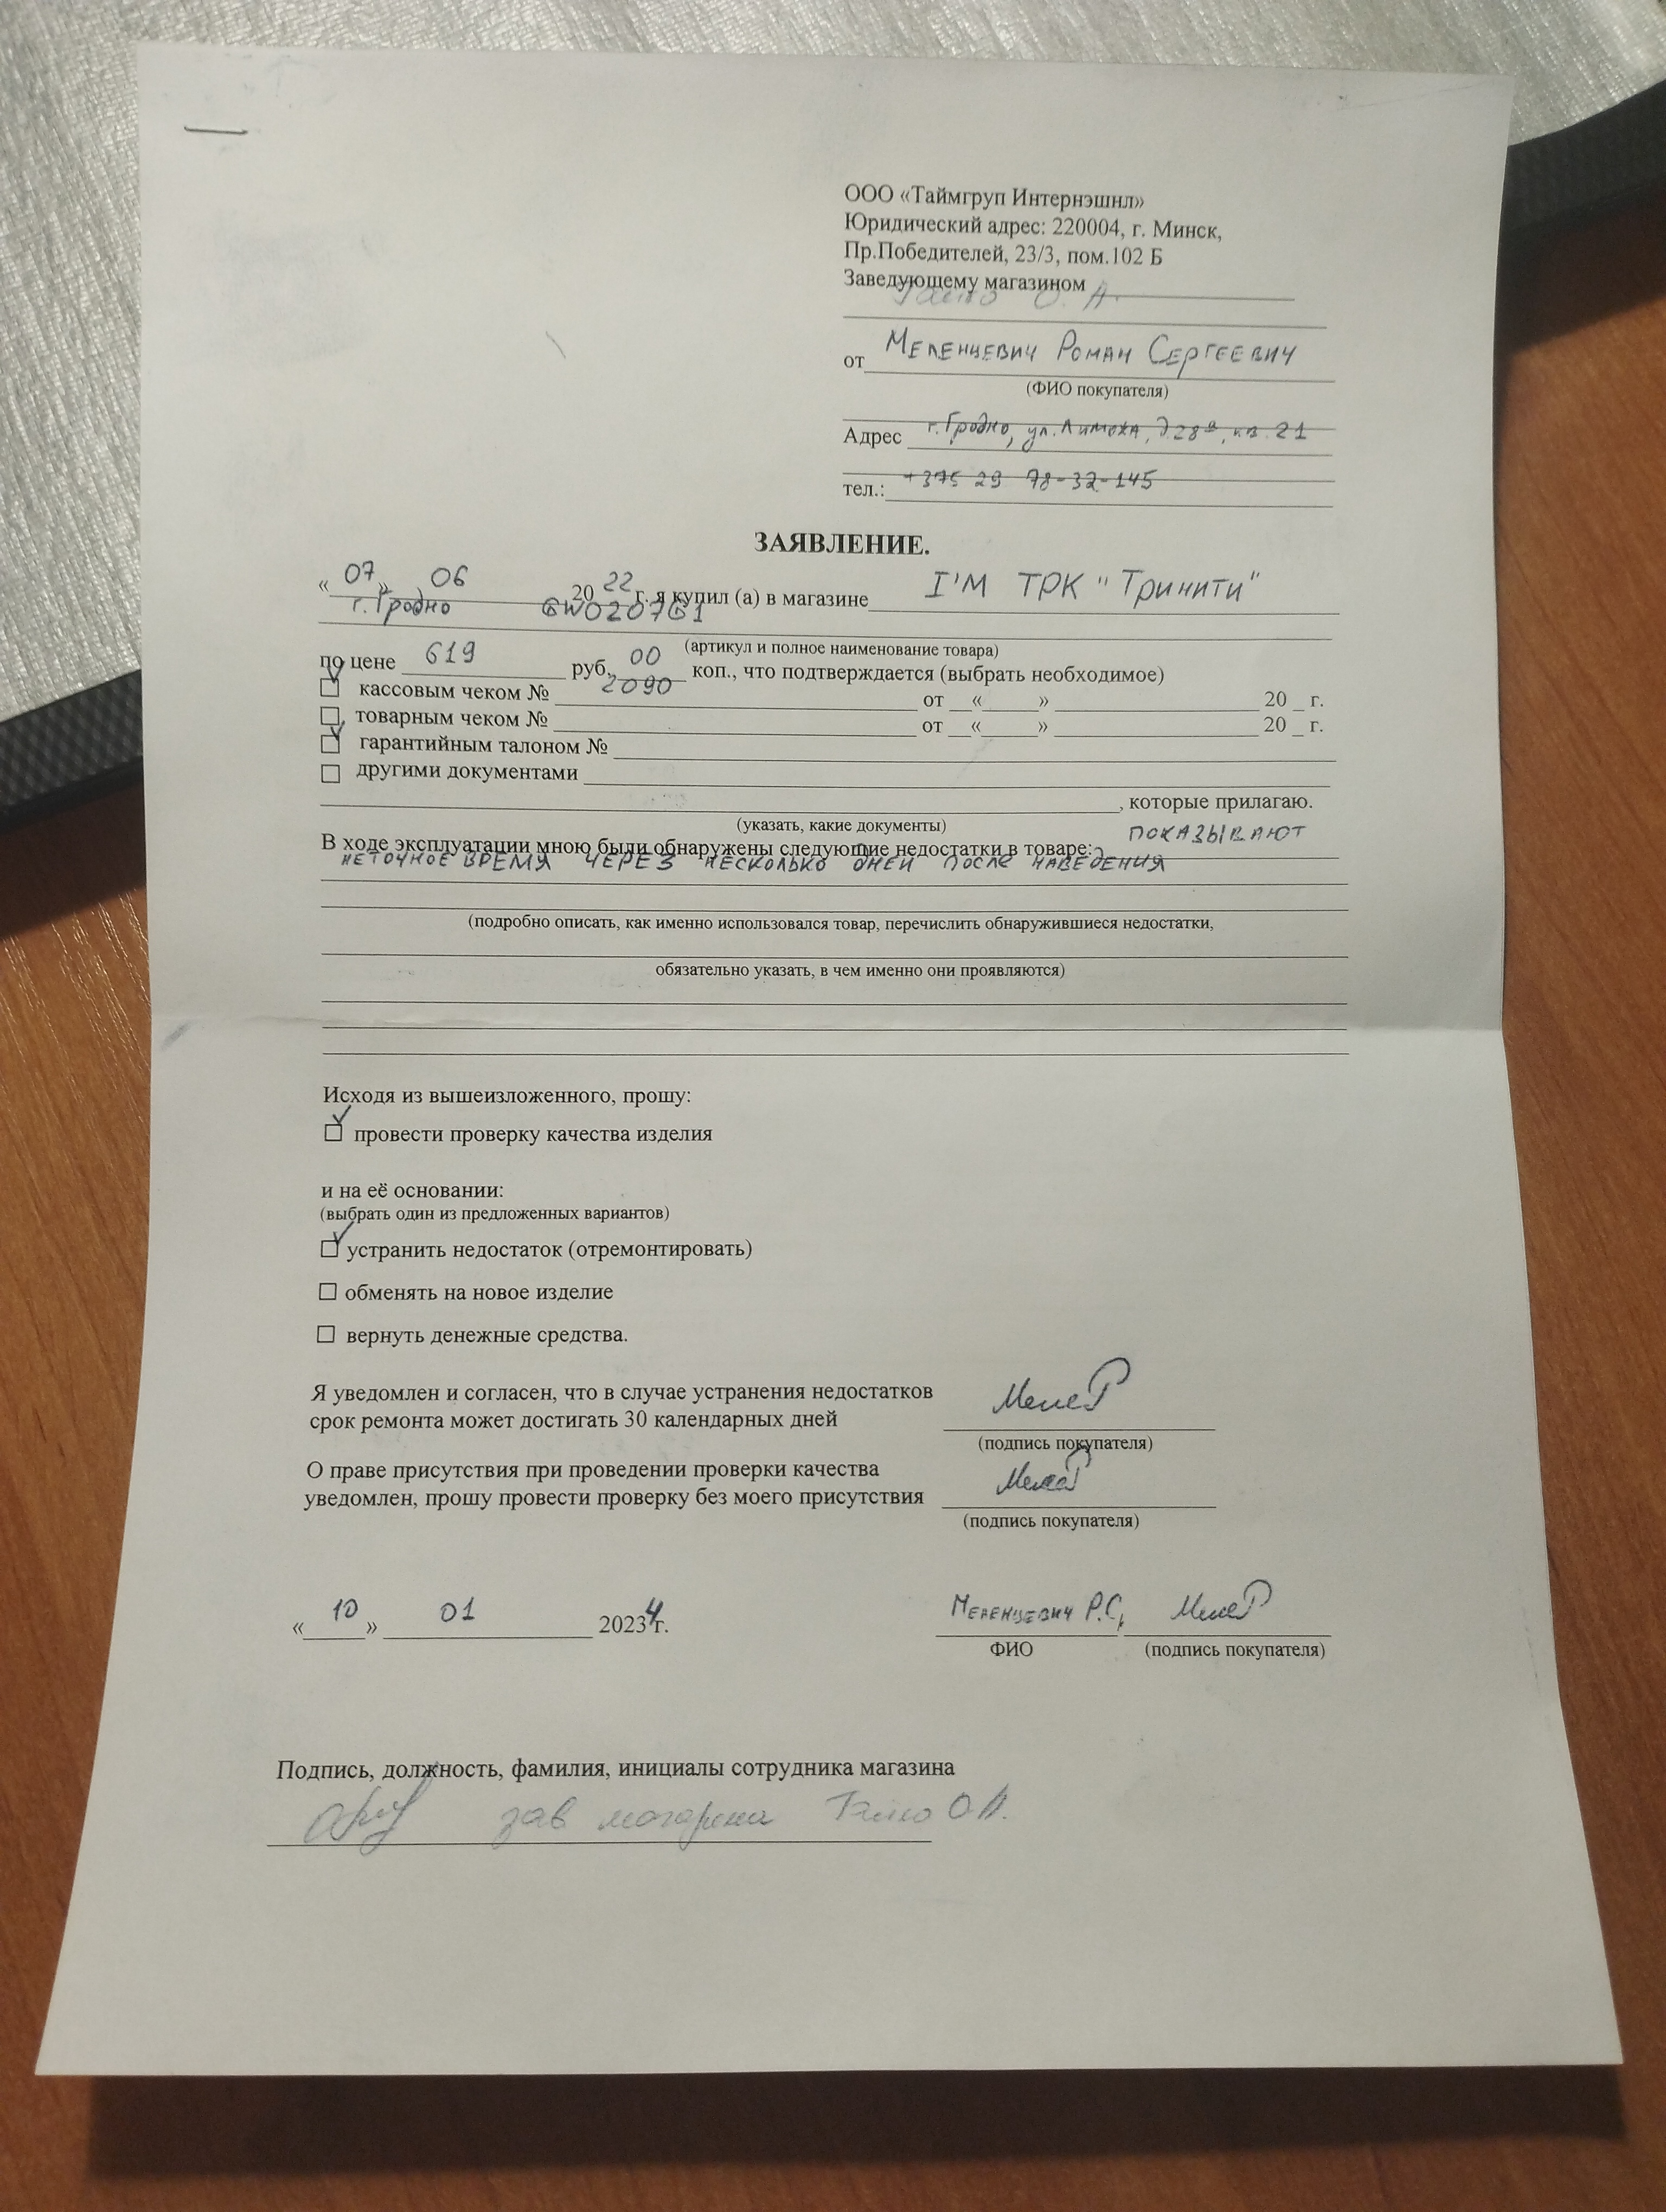 ООО «Таймгруп Интернэшнл»
Юридический адрес: 220004, г. Минск,
Пр.Победителей, 23/3, пом.102 Б
Заведующему магазином
О. А.
от Меленцевич Роман Сергеевич
(ФИО покупателя)
Адрес г. Гродно, ул. Лиможа, д.28а, кв. 21
тел.: +375 29 78-32-145
ЗАЯВЛЕНИЕ.
«07» 06 2022 г. я купил (а) в магазине I'M ТРК "Тринити"
г. Гродно GW0207G1
(артикул и полное наименование товара)
по цене 619 руб. 00 коп., что подтверждается (выбрать необходимое)
кассовым чеком № 2090 от «___» 20 _ г.
товарным чеком № от «___» 20 _ г.
гарантийным талоном №
другими документами
, которые прилагаю.
(указать, какие документы)
В ходе эксплуатации мною были обнаружены следующие недостатки в товаре: показывают
неточное время через несколько дней после наведения
(подробно описать, как именно использовался товар, перечислить обнаружившиеся недостатки,
обязательно указать, в чем именно они проявляются)
Исходя из вышеизложенного, прошу:
провести проверку качества изделия
и на её основании:
(выбрать один из предложенных вариантов)
устранить недостаток (отремонтировать)
обменять на новое изделие
вернуть денежные средства.
Я уведомлен и согласен, что в случае устранения недостатков
срок ремонта может достигать 30 календарных дней
(подпись покупателя)
О праве присутствия при проведении проверки качества
уведомлен, прошу провести проверку без моего присутствия
(подпись покупателя)
«10» 01 20234г. Меленцевич Р.С,
ФИО (подпись покупателя)
Подпись, должность, фамилия, инициалы сотрудника магазина
зав магазина О.А.